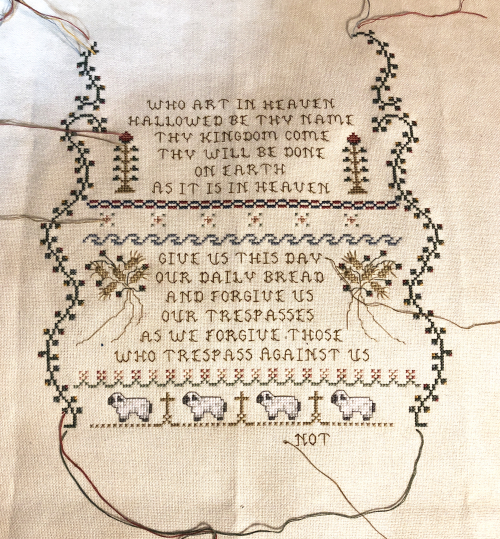 WHO ART IN HEAVEN
HALLOWED BE THY NAME
THY KINGDOM COME
THY WILL BE DONE
ON EARTH
AS IT IS IN HEAVEN
GIVE US THIS DAY
OUR DAILY BREAD
AND FORGIVE US
OUR TRESPASSES
AS WE FORGIVE THOSE
WHO TRESPASS AGAINST US
NOT